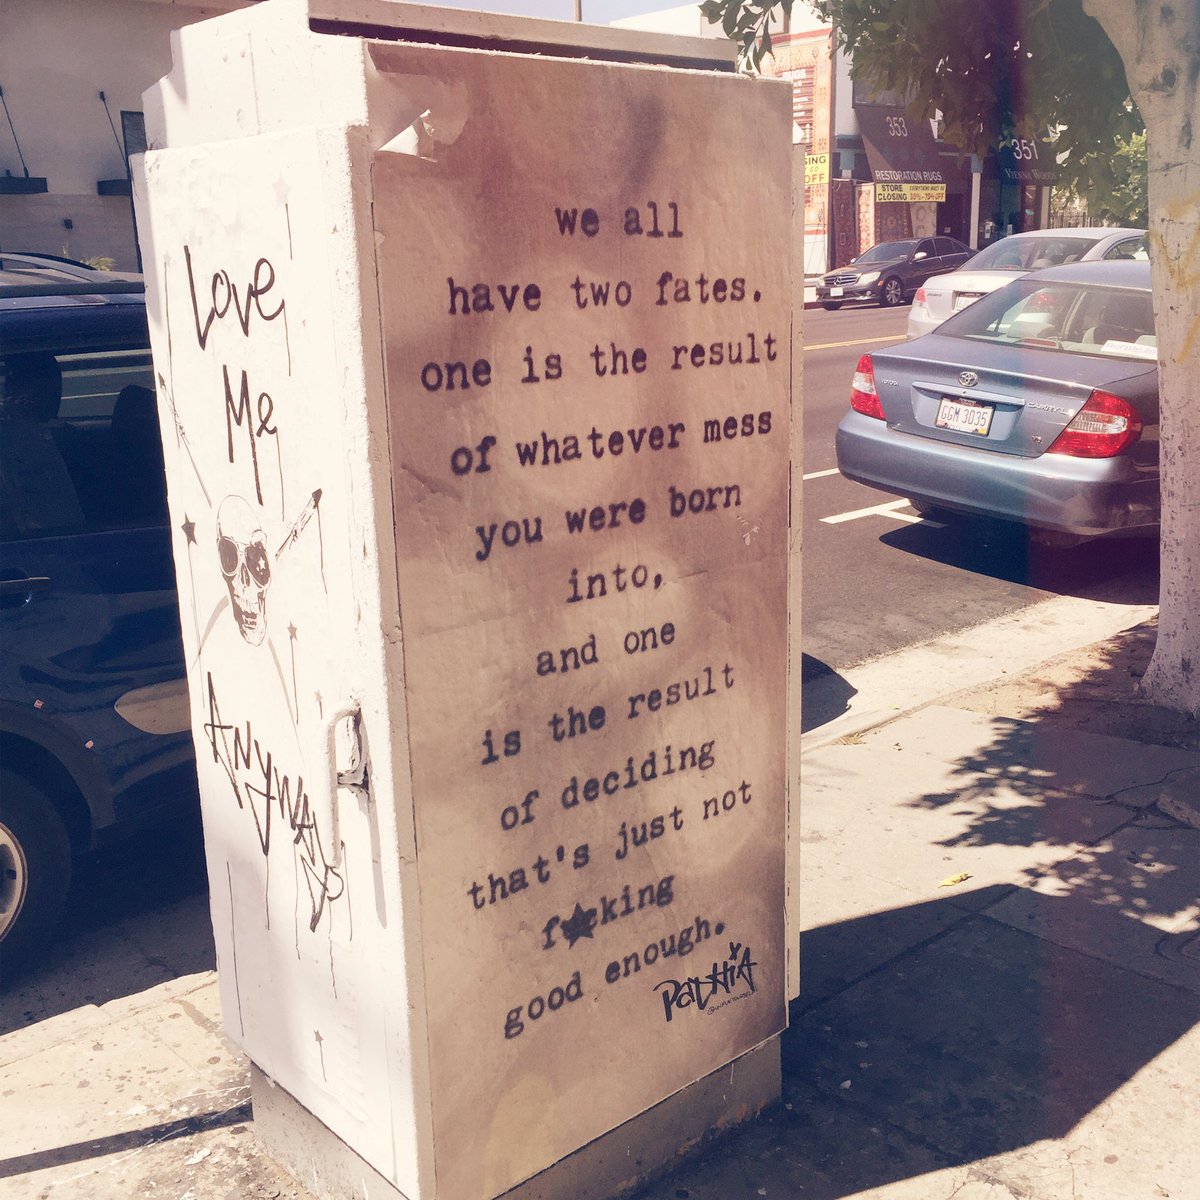 Love
Me
Anyways
we all
have two fates.
one is the result
of whatever mess
you were born
into,
and one
is the result
of deciding
that's just not
f★cking
good enough.
353
RESTORATION RUGS
STORE
CLOSING
351
VIENNA WOODS
OFF
TOYOTA
CAMRY LE
GGM 3035